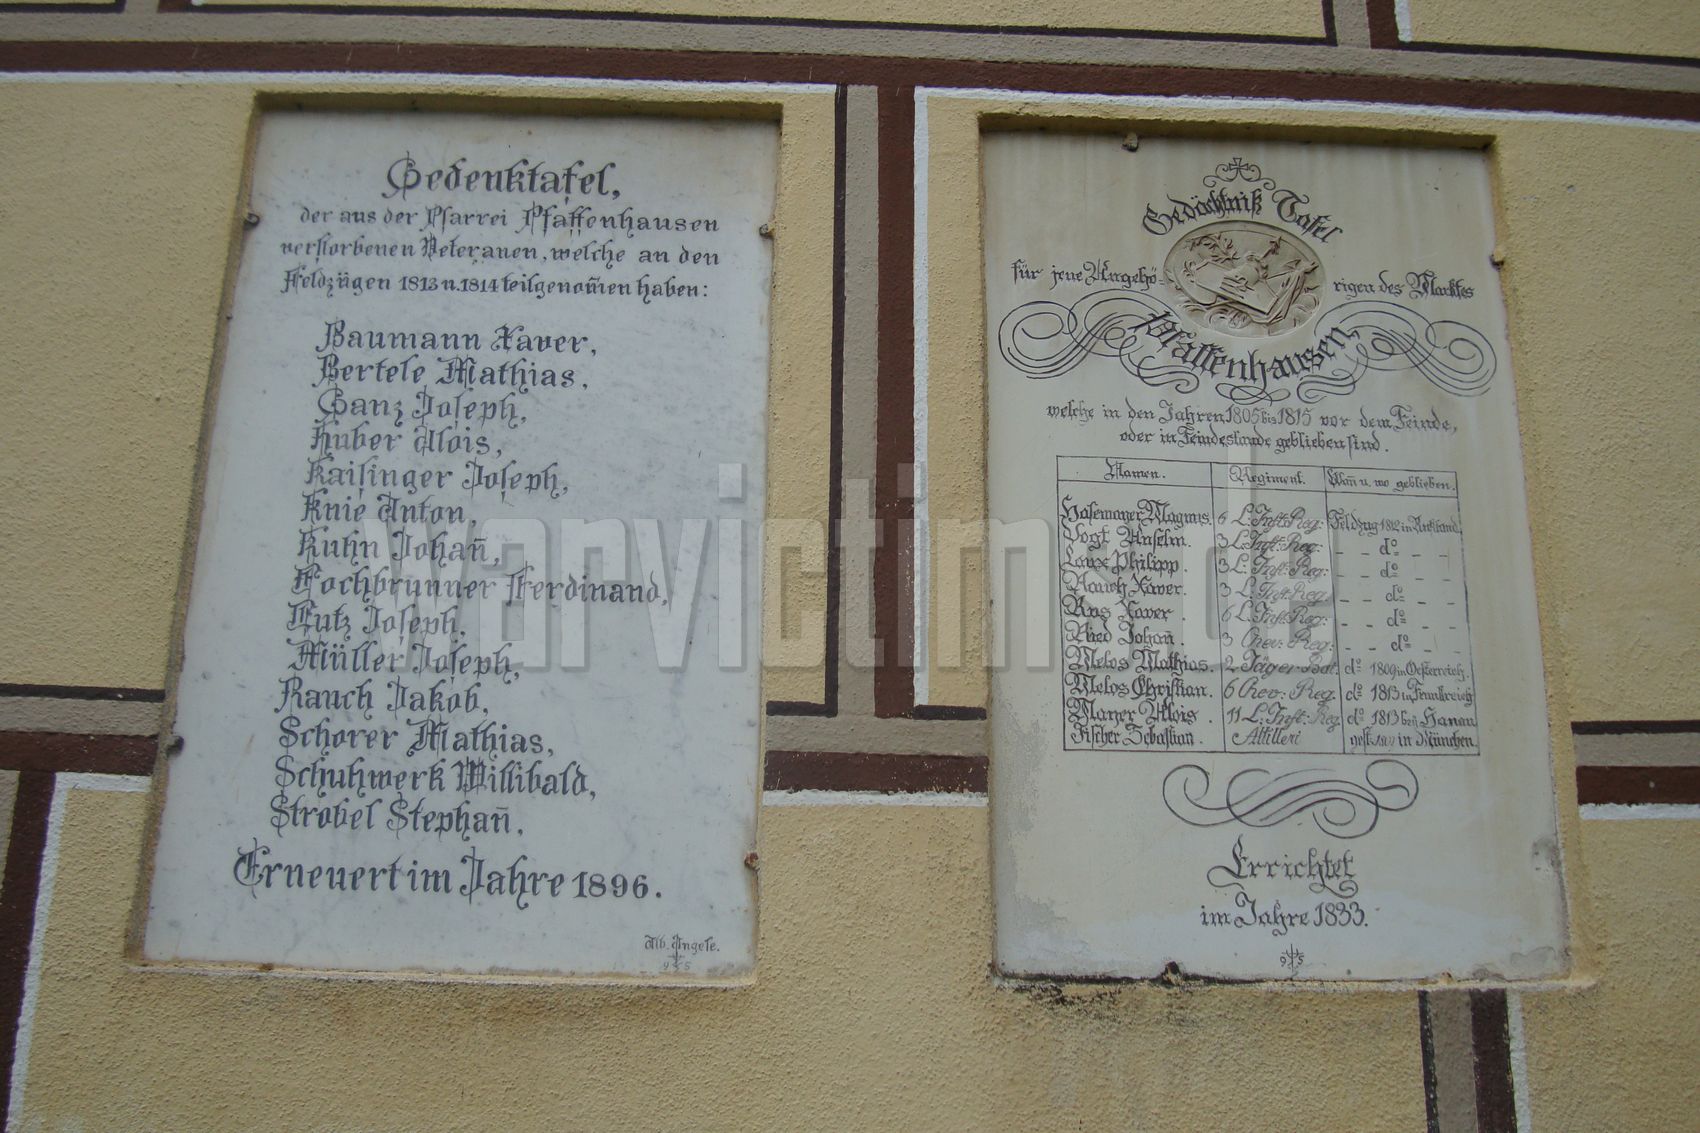 Gedenktafel,
der aus der Pfarrei Pfaffenhausen
verstorbenen Veteranen, welche an den
Feldzügen 1813 u. 1814 teilgenom̄en haben:
Baumann Xaver,
Bertele Mathias,
Ganz Joseph,
Huber Alois,
Kaisinger Joseph,
Knie Anton,
Kuhn Johan̄,
Lochbrunner Ferdinand,
Lutz Joseph,
Müller Joseph,
Rauch Jakob,
Schorer Mathias,
Schuhwerk Willibald,
Strobel Stephan̄,
Erneuert im Jahre 1896.
Alb. Ingele.
9 5
Gedächtniß Tafel
für jene Angehö-
rigen des Marktes
Pfaffenhausen,
welche in den Jahren 1805 bis 1815 vor dem Feinde,
oder in Feindeslande geblieben sind.
Namen. Regiment. Wan̄ u. wo geblieben.
Hasemayer Magnus. 6 L: Inft: Reg: Feldzug 1812 in Rußland.
Vogt Anselm. 3 L: Inft: Reg: _ _ do _ _
Laux Philipp. 3 L: Inft: Reg: _ _ do _ _
Rauch Xaver. 3 L: Inft: Reg: _ _ do _ _
Rus Xaver. 6 L: Inft: Reg: _ _ do _ _
Ried Johan̄. 3 Chev: Reg: _ _ do _ _
Melos Mathias. 2 Jäger-Bat. do 1809 in Oesterreich.
Melos Christian. 6 Chev: Reg. do 1813 in Frankreich
Mayer Alois. 11 L: Inft: Reg do 1813 bey Hanau
Fischer Sebastian. Attilleri gest. in München.
Errichtet
im Jahre 1833.
9 5
warvictims.d